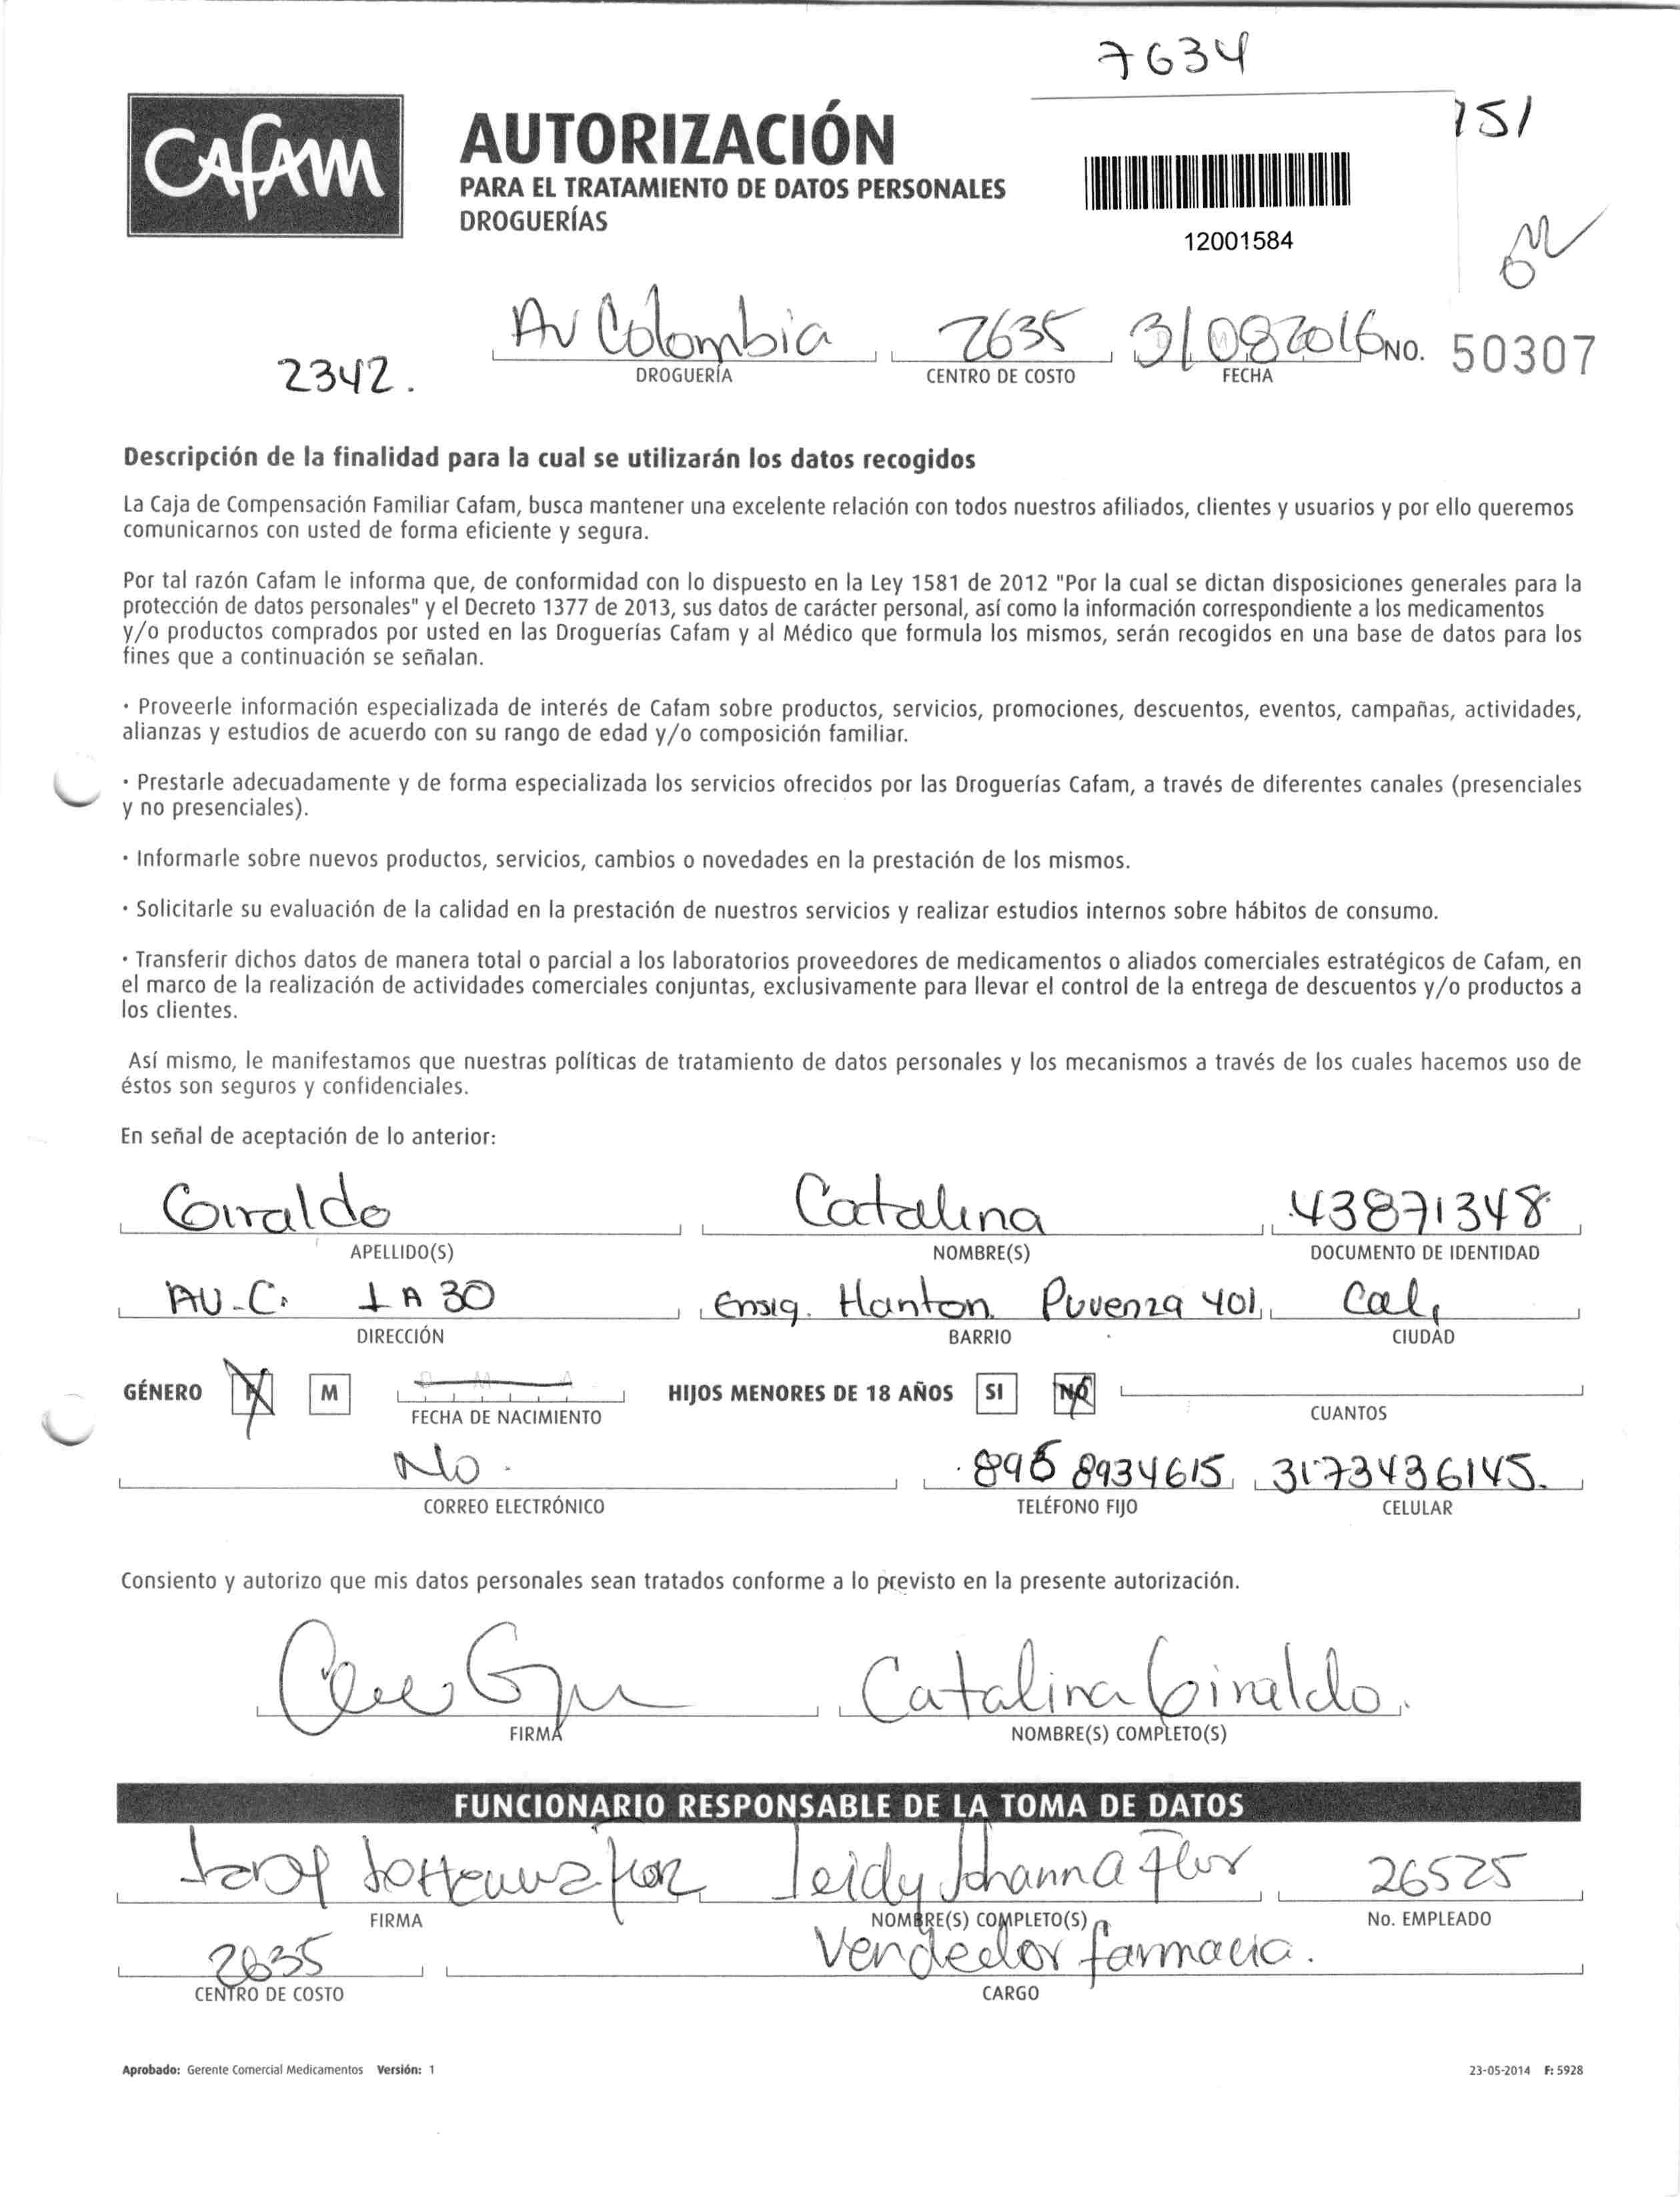 7634
CAFAM
AUTORIZACIÓN
151
PARA EL TRATAMIENTO DE DATOS PERSONALES
DROGUERÍAS
12001584
Av Colombia 2635 31082016 NO. 50307
2342.
DROGUERÍA CENTRO DE COSTO FECHA
Descripción de la finalidad para la cual se utilizarán los datos recogidos
La Caja de Compensación Familiar Cafam, busca mantener una excelente relación con todos nuestros afiliados, clientes y usuarios y por ello queremos
comunicarnos con usted de forma eficiente y segura.
Por tal razón Cafam le informa que, de conformidad con lo dispuesto en la Ley 1581 de 2012 "Por la cual se dictan disposiciones generales para la
protección de datos personales" y el Decreto 1377 de 2013, sus datos de carácter personal, así como la información correspondiente a los medicamentos
y/o productos comprados por usted en las Droguerías Cafam y al Médico que formula los mismos, serán recogidos en una base de datos para los
fines que a continuación se señalan.
· Proveerle información especializada de interés de Cafam sobre productos, servicios, promociones, descuentos, eventos, campañas, actividades,
alianzas y estudios de acuerdo con su rango de edad y/o composición familiar.
· Prestarle adecuadamente y de forma especializada los servicios ofrecidos por las Droguerías Cafam, a través de diferentes canales (presenciales
y no presenciales).
· Informarle sobre nuevos productos, servicios, cambios o novedades en la prestación de los mismos.
· Solicitarle su evaluación de la calidad en la prestación de nuestros servicios y realizar estudios internos sobre hábitos de consumo.
· Transferir dichos datos de manera total o parcial a los laboratorios proveedores de medicamentos o aliados comerciales estratégicos de Cafam, en
el marco de la realización de actividades comerciales conjuntas, exclusivamente para llevar el control de la entrega de descuentos y/o productos a
los clientes.
Así mismo, le manifestamos que nuestras políticas de tratamiento de datos personales y los mecanismos a través de los cuales hacemos uso de
éstos son seguros y confidenciales.
En señal de aceptación de lo anterior:
Giraldo Catalina 43871348
APELLIDO(S) NOMBRE(S) DOCUMENTO DE IDENTIDAD
AU-C. 1 A 30 Ensig. 401 Cali
DIRECCIÓN BARRIO CIUDAD
GÉNERO F M HIJOS MENORES DE 18 AÑOS SI NO
FECHA DE NACIMIENTO CUANTOS
No. 8934615 3173436145.
CORREO ELECTRÓNICO TELÉFONO FIJO CELULAR
Consiento y autorizo que mis datos personales sean tratados conforme a lo previsto en la presente autorización.
Catalina Giraldo.
FIRMA NOMBRE(S) COMPLETO(S)
FUNCIONARIO RESPONSABLE DE LA TOMA DE DATOS
Leidy Johanna Flor 26525
FIRMA NOMBRE(S) COMPLETO(S) No. EMPLEADO
2635 Vendedor farmacia.
CENTRO DE COSTO CARGO
Aprobado: Gerente Comercial Medicamentos Versión: 1 23-05-2014 F: 5928